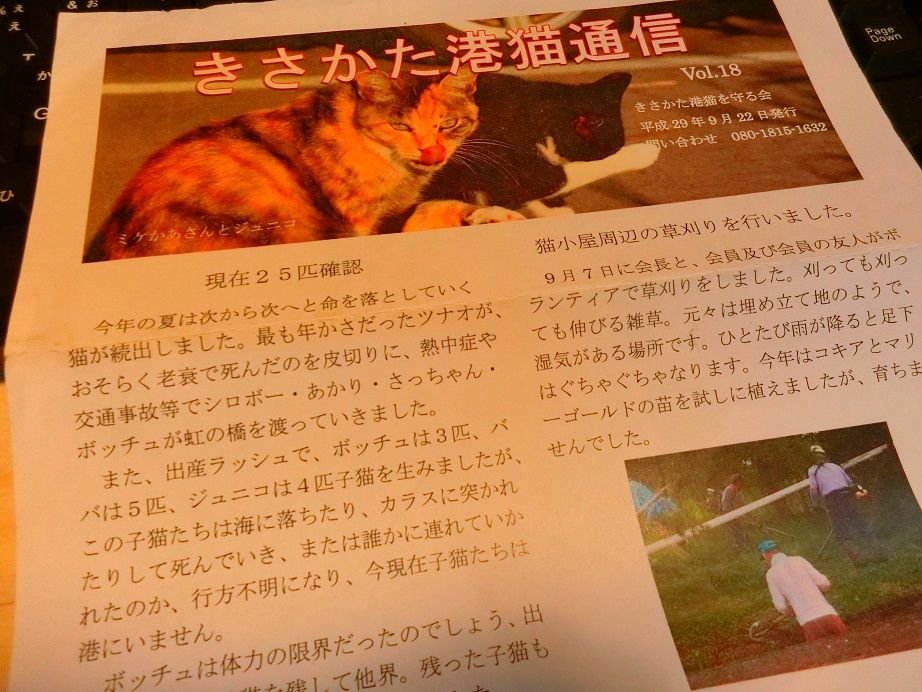 きさかた港猫通信
Vol.18
きさかた港猫を守る会
平成29年9月22日発行
問い合わせ 080-1815-1632
ミケかあさんとジュニコ
現在25匹確認
今年の夏は次から次へと命を落としていく
猫が続出しました。最も年かさだったツナオが、
おそらく老衰で死んだのを皮切りに、熱中症や
交通事故等でシロボー・あかり・さっちゃん・
ボッチュが虹の橋を渡っていきました。
また、出産ラッシュで、ボッチュは3匹、バ
バは5匹、ジュニコは4匹子猫を生みましたが、
この子猫たちは海に落ちたり、カラスに突かれ
たりして死んでいき、または誰かに連れていか
れたのか、行方不明になり、今現在子猫たちは
港にいません。
ボッチュは体力の限界だったのでしょう、出
猫を残して他界。残った子猫も
猫小屋周辺の草刈りを行いました。
9月7日に会長と、会員及び会員の友人がボ
ランティアで草刈りをしました。刈っても刈っ
ても伸びる雑草。元々は埋め立て地のようで、
湿気がある場所です。ひとたび雨が降ると足下
はぐちゃぐちゃなります。今年はコキアとマリ
ーゴールドの苗を試しに植えましたが、育ちま
せんでした。
Page
Down